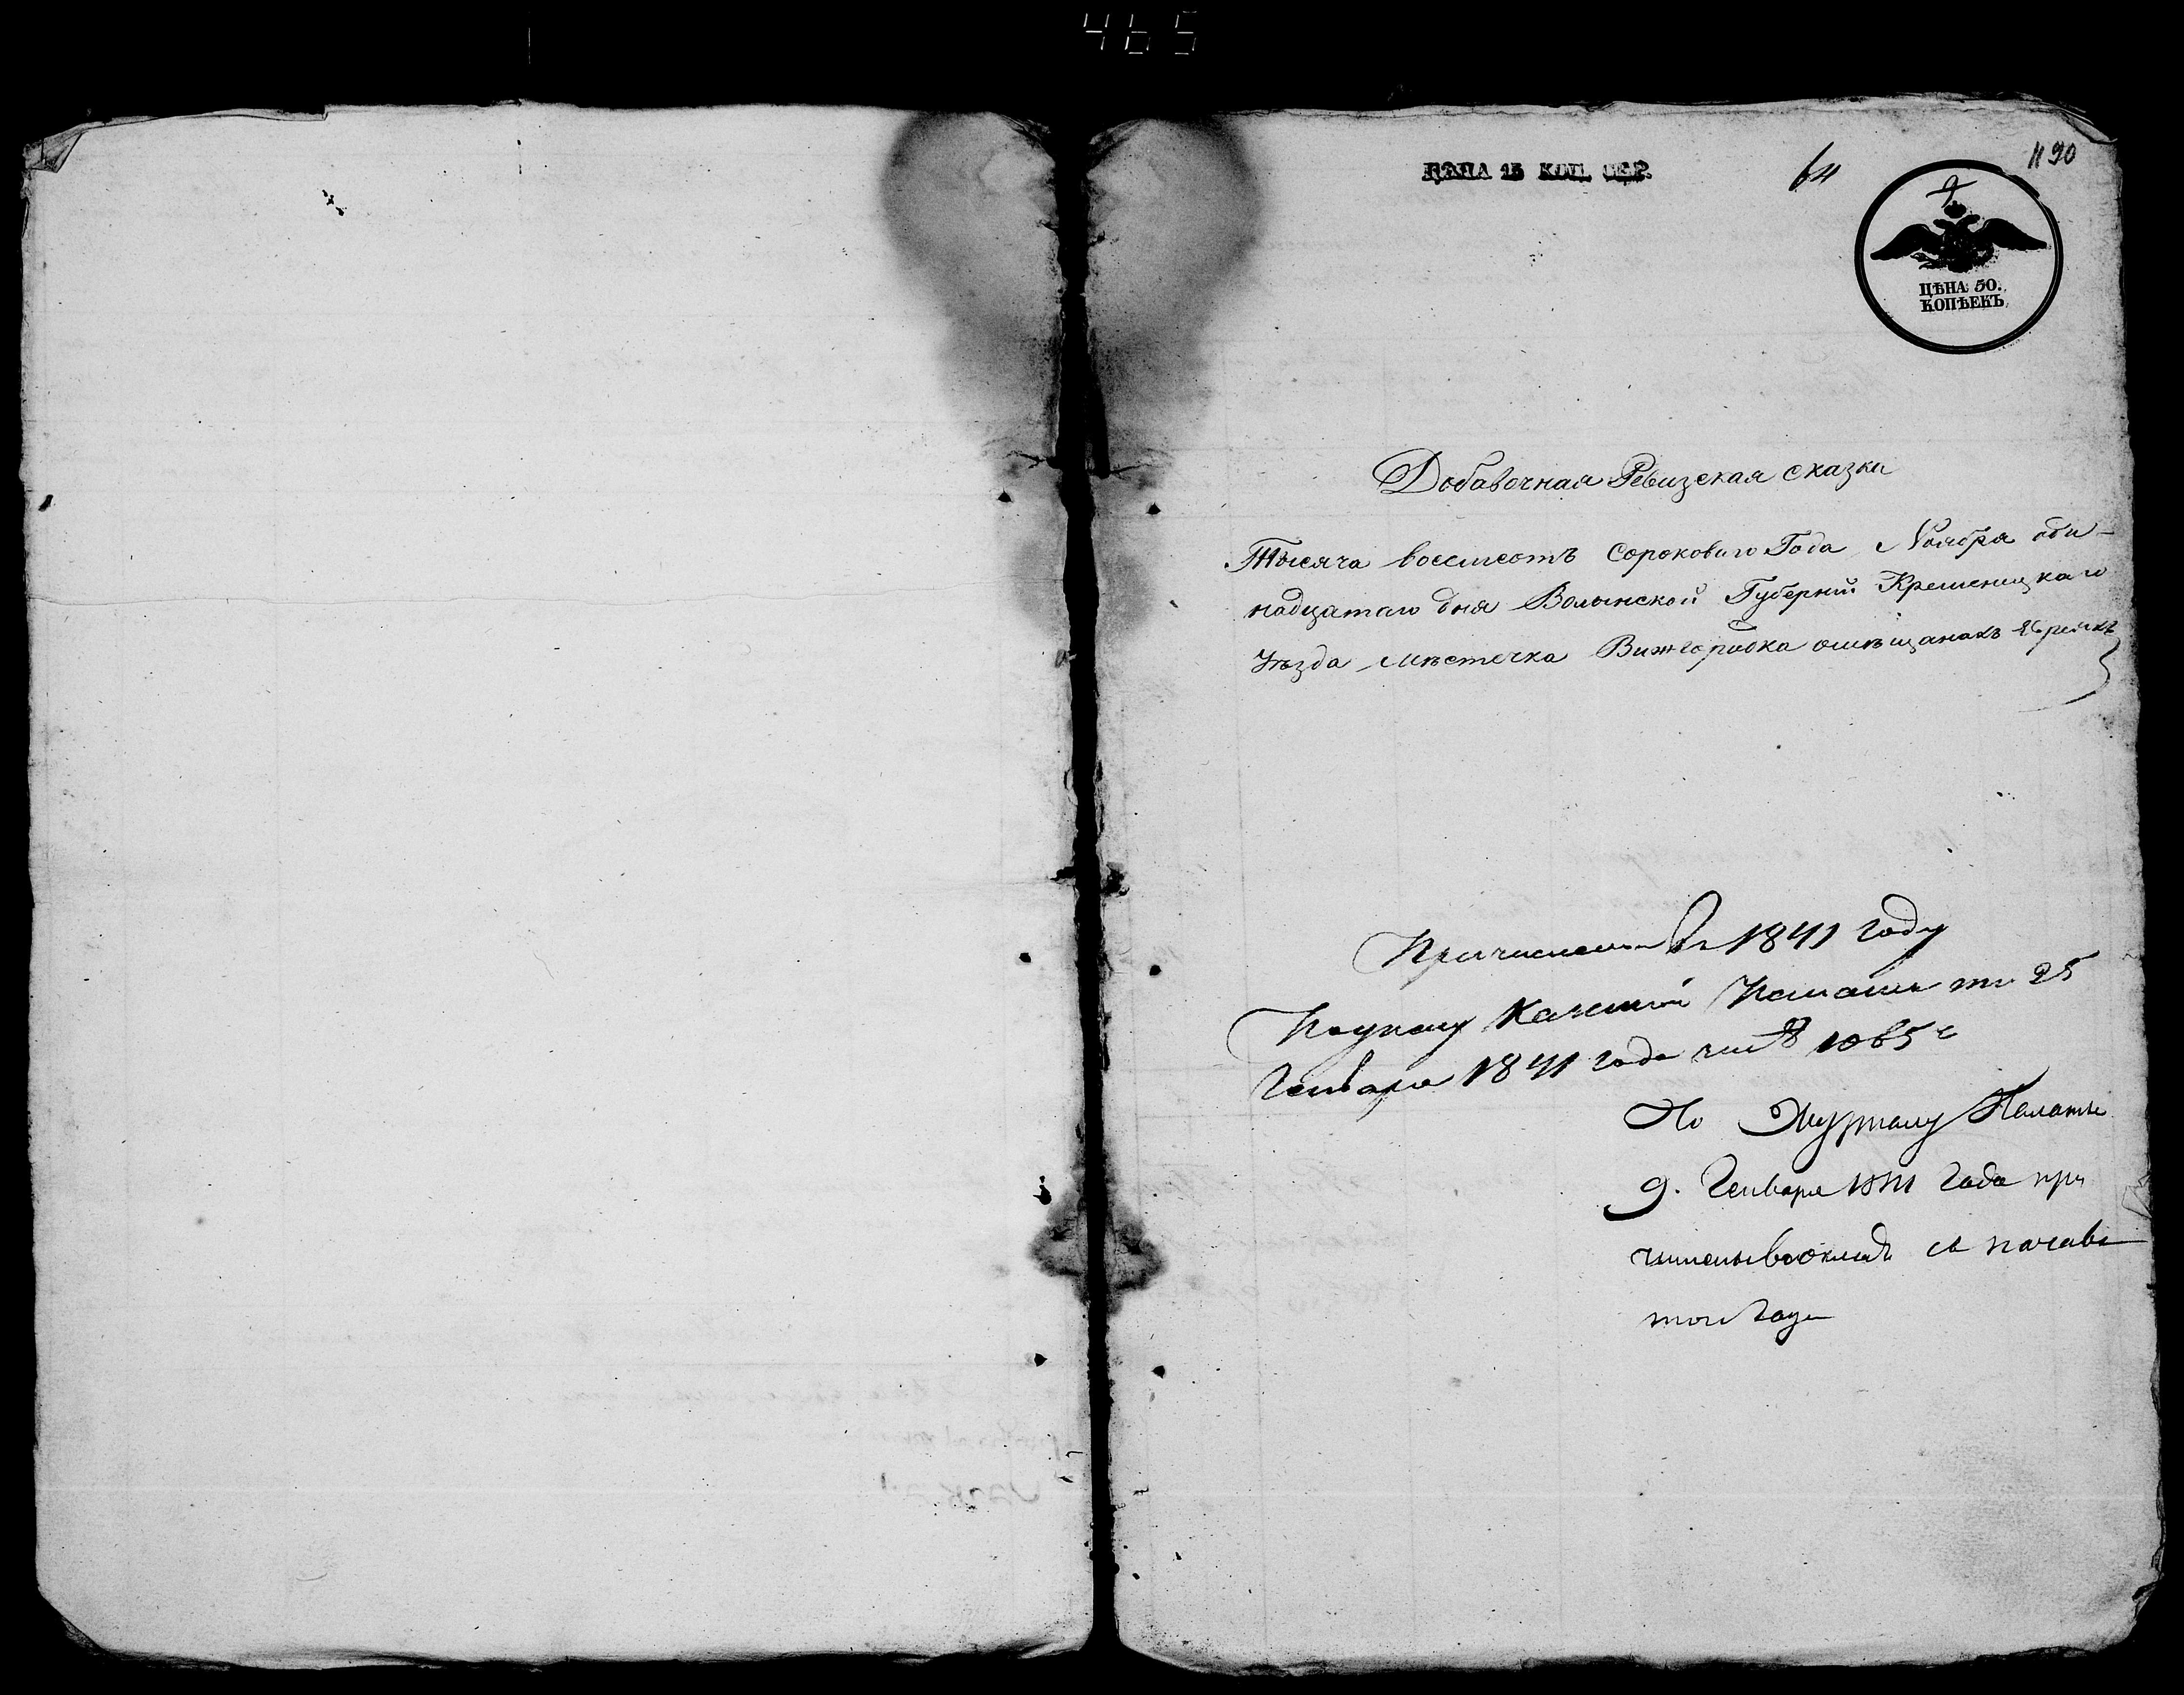 465
ЦѢНА 15 КОП. СЕР.
1190
ЦѢНА 50.
КОПѢЕКЪ
Добавочная Ревизская сказка
Тысяча восемсотъ сороковаго Года Ноября оди-
надцатаго дня Волынской Губерніи Кременецкаго
Уѣзда мѣстечка Вижгородка омѣщанахъ Евреяхъ
Причислены въ 1841 году
Поуказу Казенной Палаты отъ 25
Генваря 1841 года за № 1065
По Журналу Палаты
9. Генваря 1841 года при
числены вокладъ съ начала
того Года